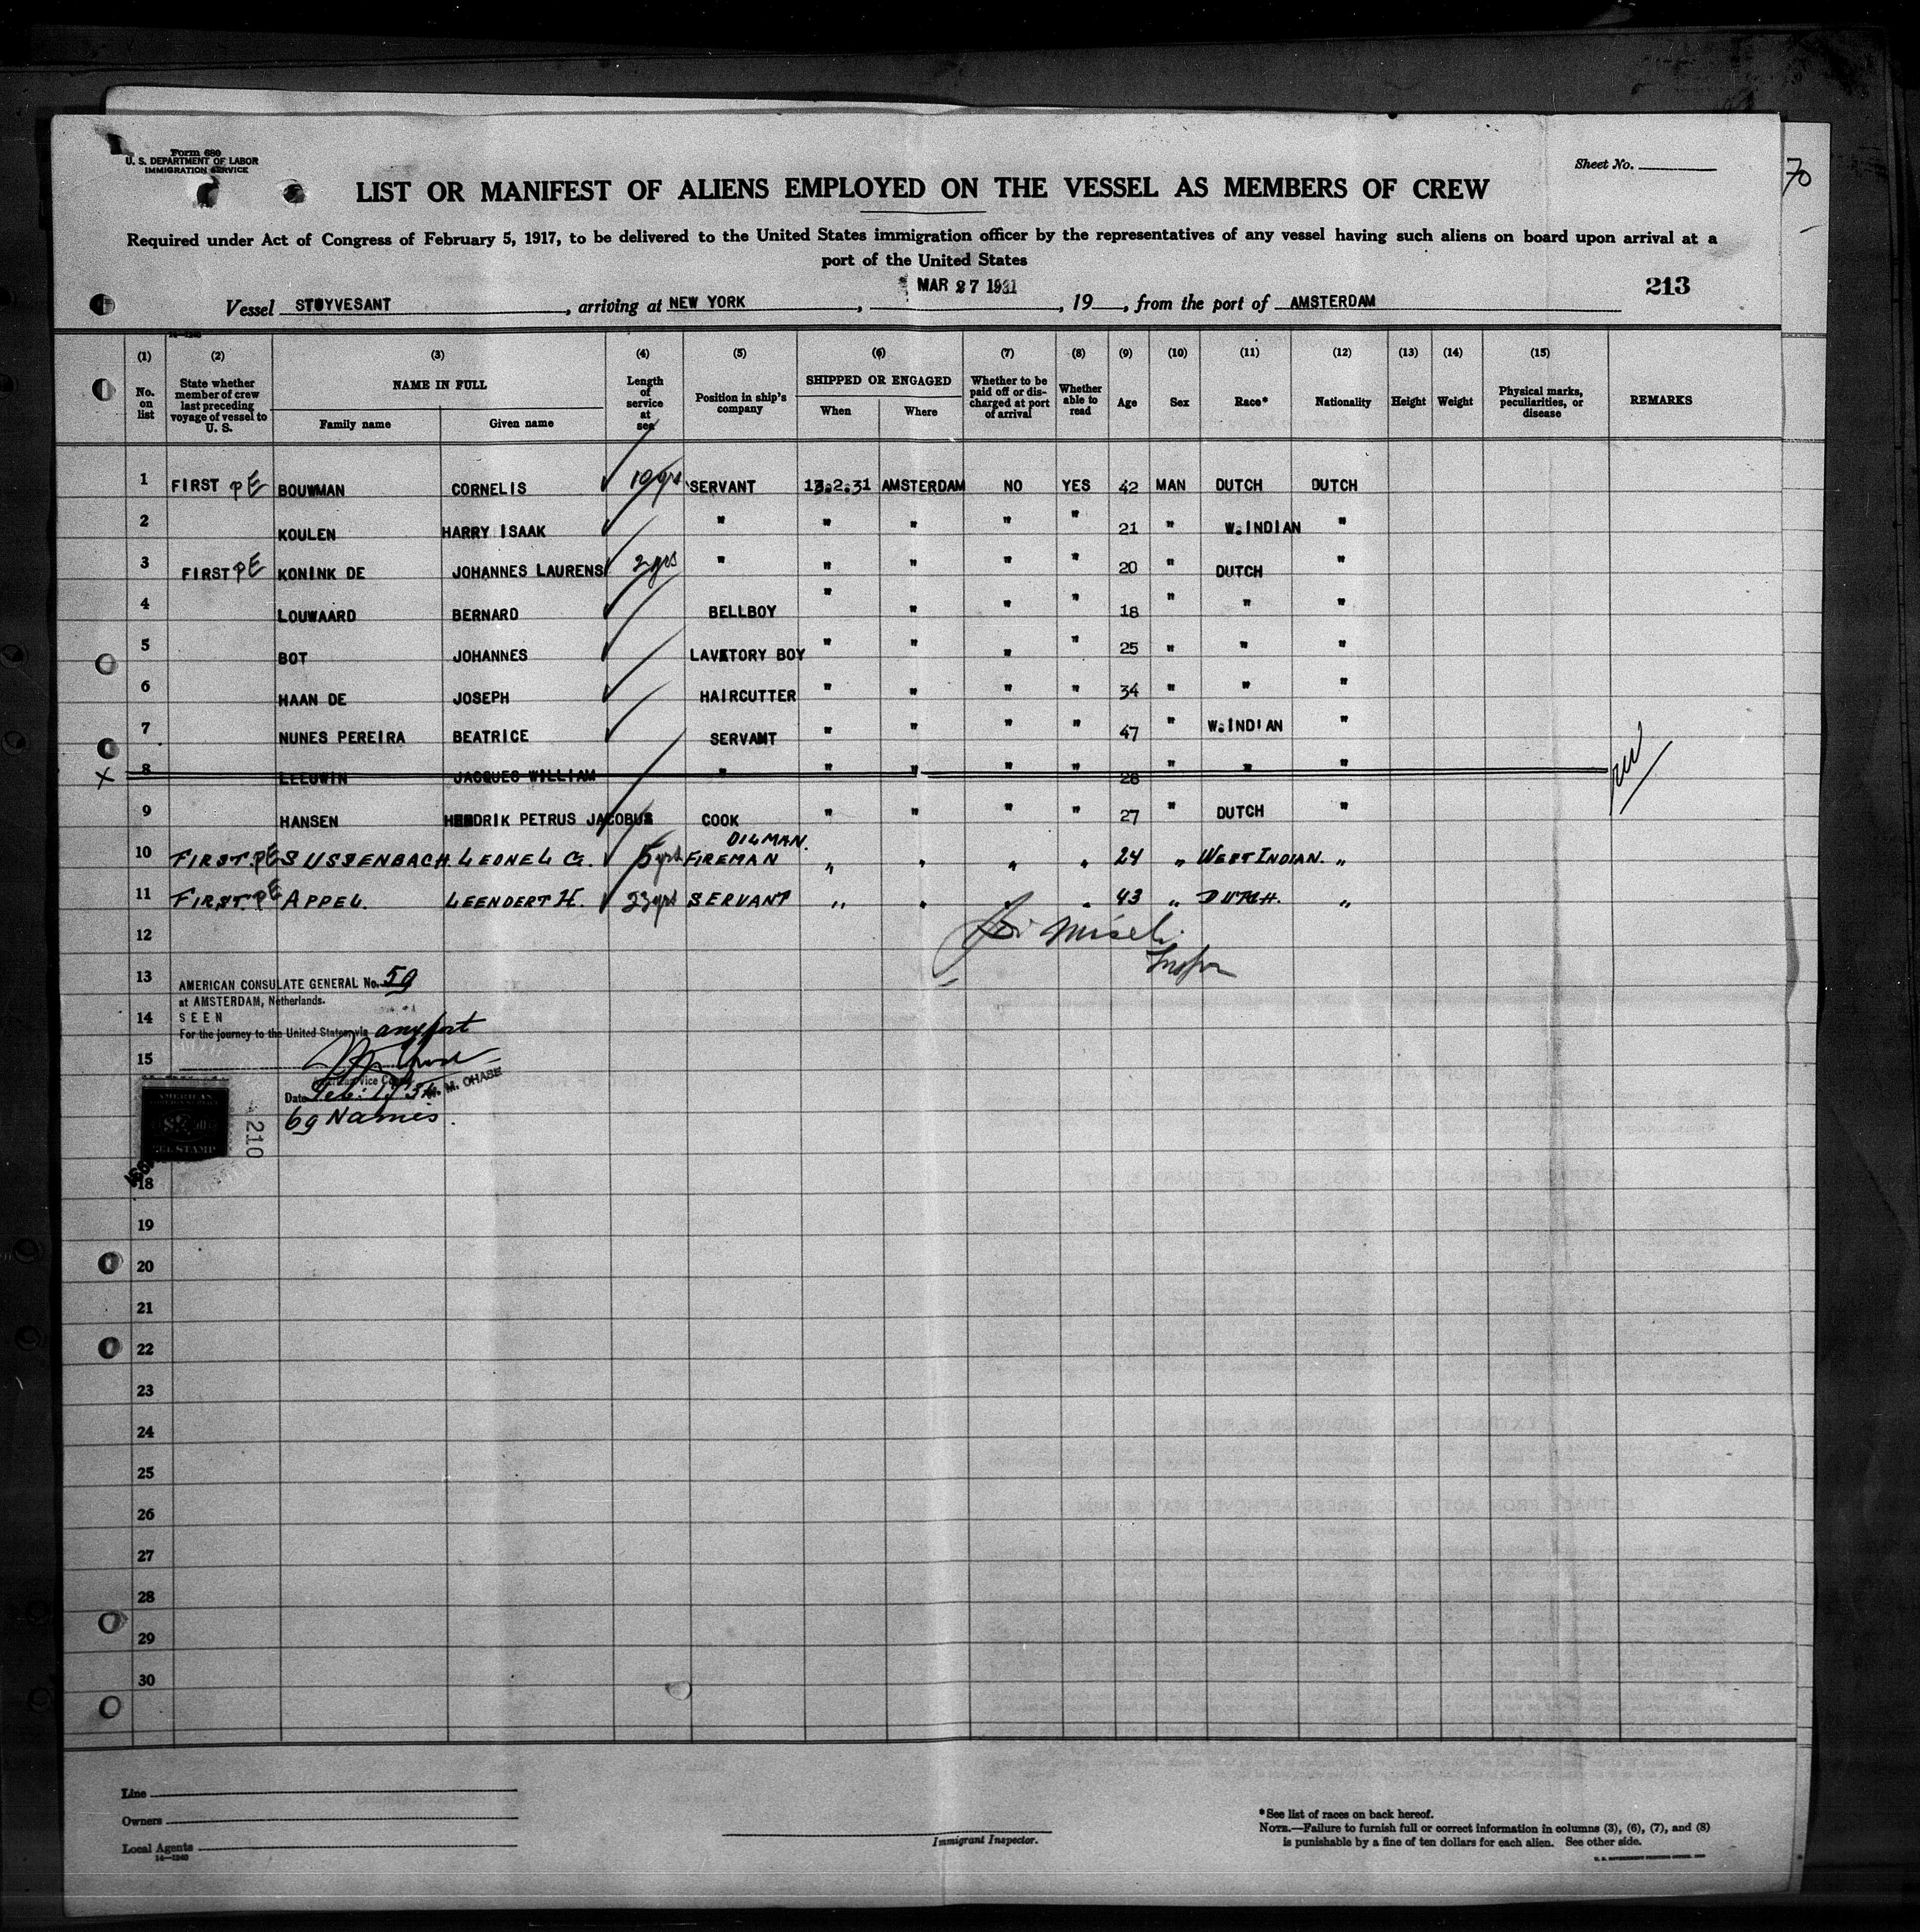 Form 680
U. S. DEPARTMENT OF LABOR
IMMIGRATION SERVICE
Sheet No.
70
LIST OR MANIFEST OF ALIENS EMPLOYED ON THE VESSEL AS MEMBERS OF CREW
Required under Act of Congress of February 5, 1917, to be delivered to the United States immigration officer by the representatives of any vessel having such aliens on board upon arrival at a
port of the United States
MAR 27 1931
213
Vessel STUYVESANT, arriving at NEW YORK, , 19 , from the port of AMSTERDAM
(1) (2) (3) (4) (5) (6) (7) (8) (9) (10) (11) (12) (13) (14) (15)
No. on list
State whether member of crew last preceding voyage of vessel to U. S.
NAME IN FULL
Family name
Given name
Length of service at sea
Position in ship's company
SHIPPED OR ENGAGED
When
Where
Whether to be paid off or discharged at port of arrival
Whether able to read
Age
Sex
Race*
Nationality
Height
Weight
Physical marks, peculiarities, or disease
REMARKS
1 FIRST PE BOUWMAN CORNELIS 10 yrs SERVANT 13.2.31 AMSTERDAM NO YES 42 MAN DUTCH DUTCH
2 KOULEN HARRY ISAAK " " " " " 21 " W.INDIAN "
3 FIRST PE KONINK DE JOHANNES LAURENS 2 yrs " " " " " 20 " DUTCH "
4 LOUWAARD BERNARD BELLBOY " " " " 18 " " "
5 BOT JOHANNES LAVATORY BOY " " " " 25 " " "
6 HAAN DE JOSEPH HAIRCUTTER " " " " 34 " " "
7 NUNES PEREIRA BEATRICE SERVANT " " " " 47 " W.INDIAN "
X 8 LEEUWIN JACQUES WILLIAM " " " " " 26 " " "
9 HANSEN HENDRIK PETRUS JACOBUS COOK " " " " 27 " DUTCH "
OILMAN.
10 FIRST. PE SUSSENBACH LEONEL G. 5 yrs FIREMAN " " " " 24 " WEST INDIAN. "
11 FIRST. PE APPEL. LEENDERT H. 23 yrs SERVANT " " " " 43 " DUTCH. "
12
13
AMERICAN CONSULATE GENERAL No. 59
at AMSTERDAM, Netherlands.
14
SEEN
For the journey to the United States via any port
15
American Vice Consul
Date Feb.
M. CHASE
69 Names.
210
18
19
20
21
22
23
24
25
26
27
28
29
30
Line
Owners
Local Agents
14—1240
Immigrant Inspector.
*See list of races on back hereof.
NOTE.—Failure to furnish full or correct information in columns (3), (6), (7), and (8)
is punishable by a fine of ten dollars for each alien. See other side.